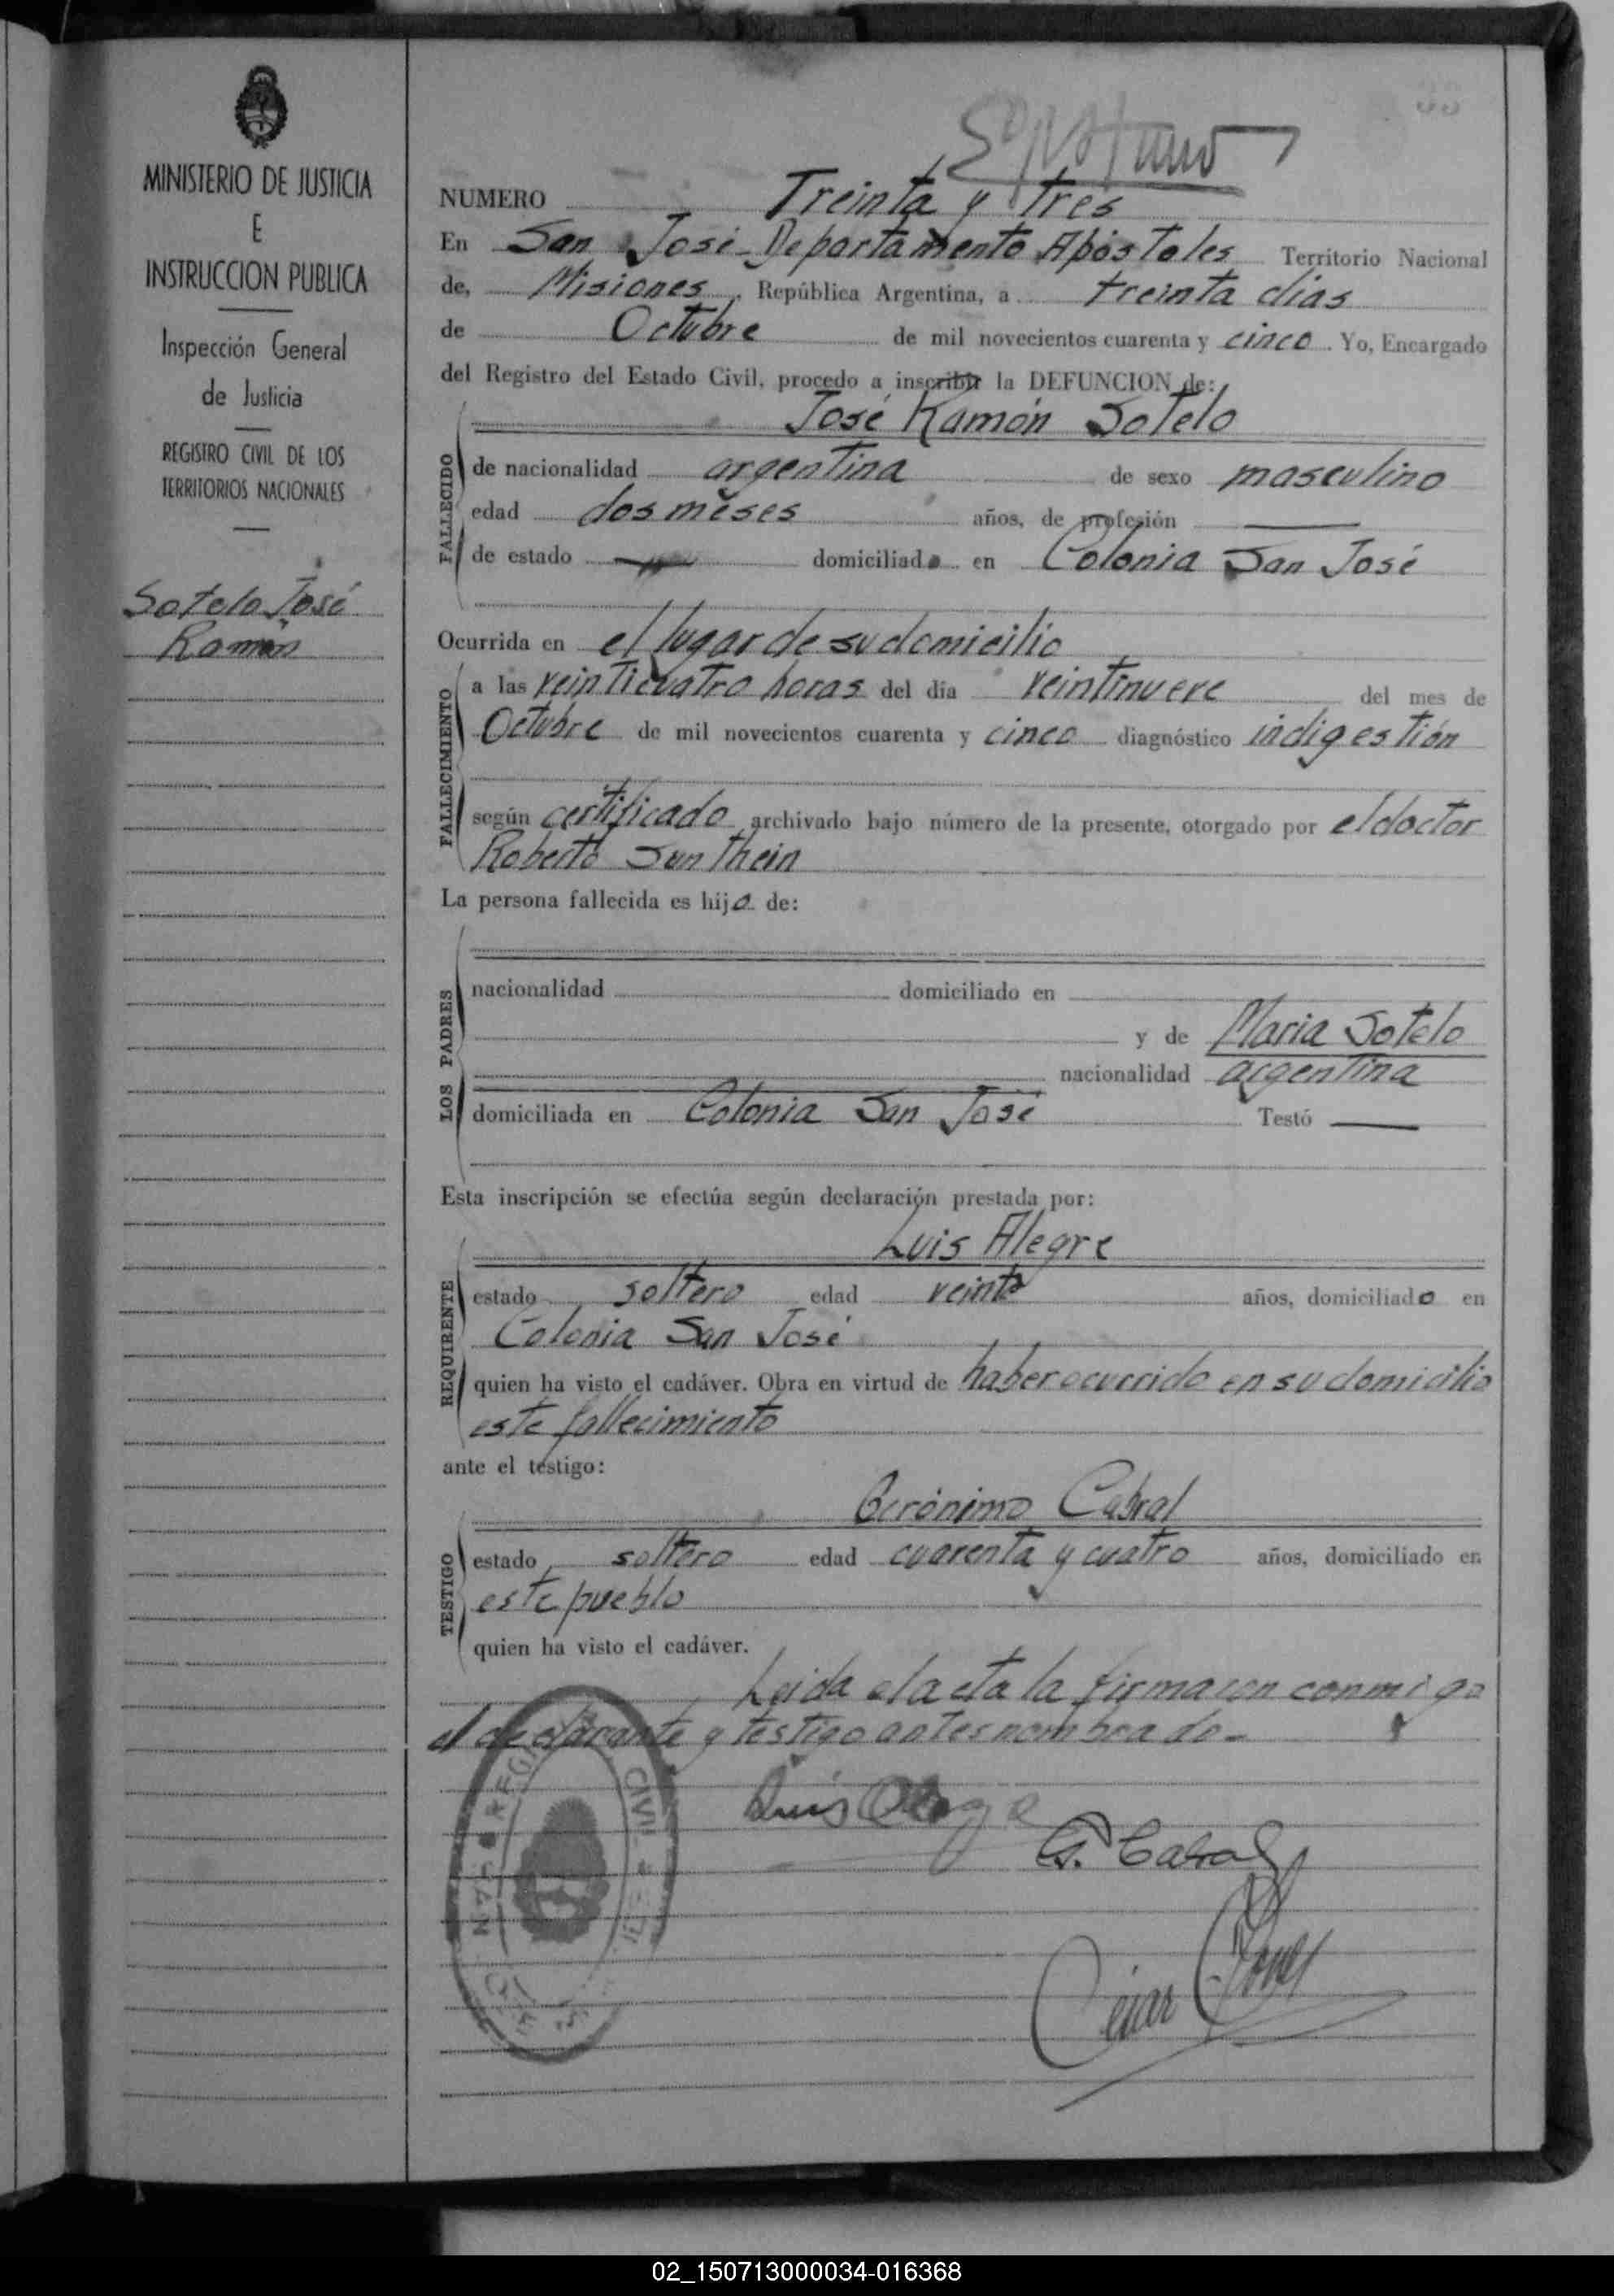 MINISTERIO DE JUSTICIA
E
INSTRUCCION PUBLICA
Inspección General
de Justicia
REGISTRO CIVIL DE LOS
TERRITORIOS NACIONALES
Sotelo José
Ramón
NUMERO Treinta y tres
En San José - Departamento Apóstoles Territorio Nacional
de, Misiones, República Argentina, a treinta dias
de Octubre de mil novecientos cuarenta y cinco. Yo, Encargado
del Registro del Estado Civil, procedo a inscribir la DEFUNCION de:
José Ramón Sotelo
FALLECIDO
de nacionalidad argentina de sexo masculino
edad dos meses años, de profesión
de estado domiciliado en Colonia San José
Ocurrida en el lugar de su domicilio
FALLECIMIENTO
a las veinticuatro horas del día veintinueve del mes de
Octubre de mil novecientos cuarenta y cinco diagnóstico indigestión
según certificado archivado bajo número de la presente, otorgado por el doctor
Roberto Sunthein
La persona fallecida es hijo de:
LOS PADRES
nacionalidad domiciliado en
y de Maria Sotelo
nacionalidad argentina
domiciliada en Colonia San José Testó
Esta inscripción se efectúa según declaración prestada por:
Luis Alegre
REQUIRENTE
estado soltero edad veinte años, domiciliado en
Colonia San José
quien ha visto el cadáver. Obra en virtud de haber ocurrido en su domicilio
este fallecimiento
ante el testigo:
Gerónimo Cabral
TESTIGO
estado soltero edad cuarenta y cuatro años, domiciliado en
este pueblo
quien ha visto el cadáver.
Leida el acta la firmaron conmigo
el declarante y testigo antes nombrado.-
Luis Alegre
G. Cabral
César
CIVIL
SAN
02_150713000034-016368